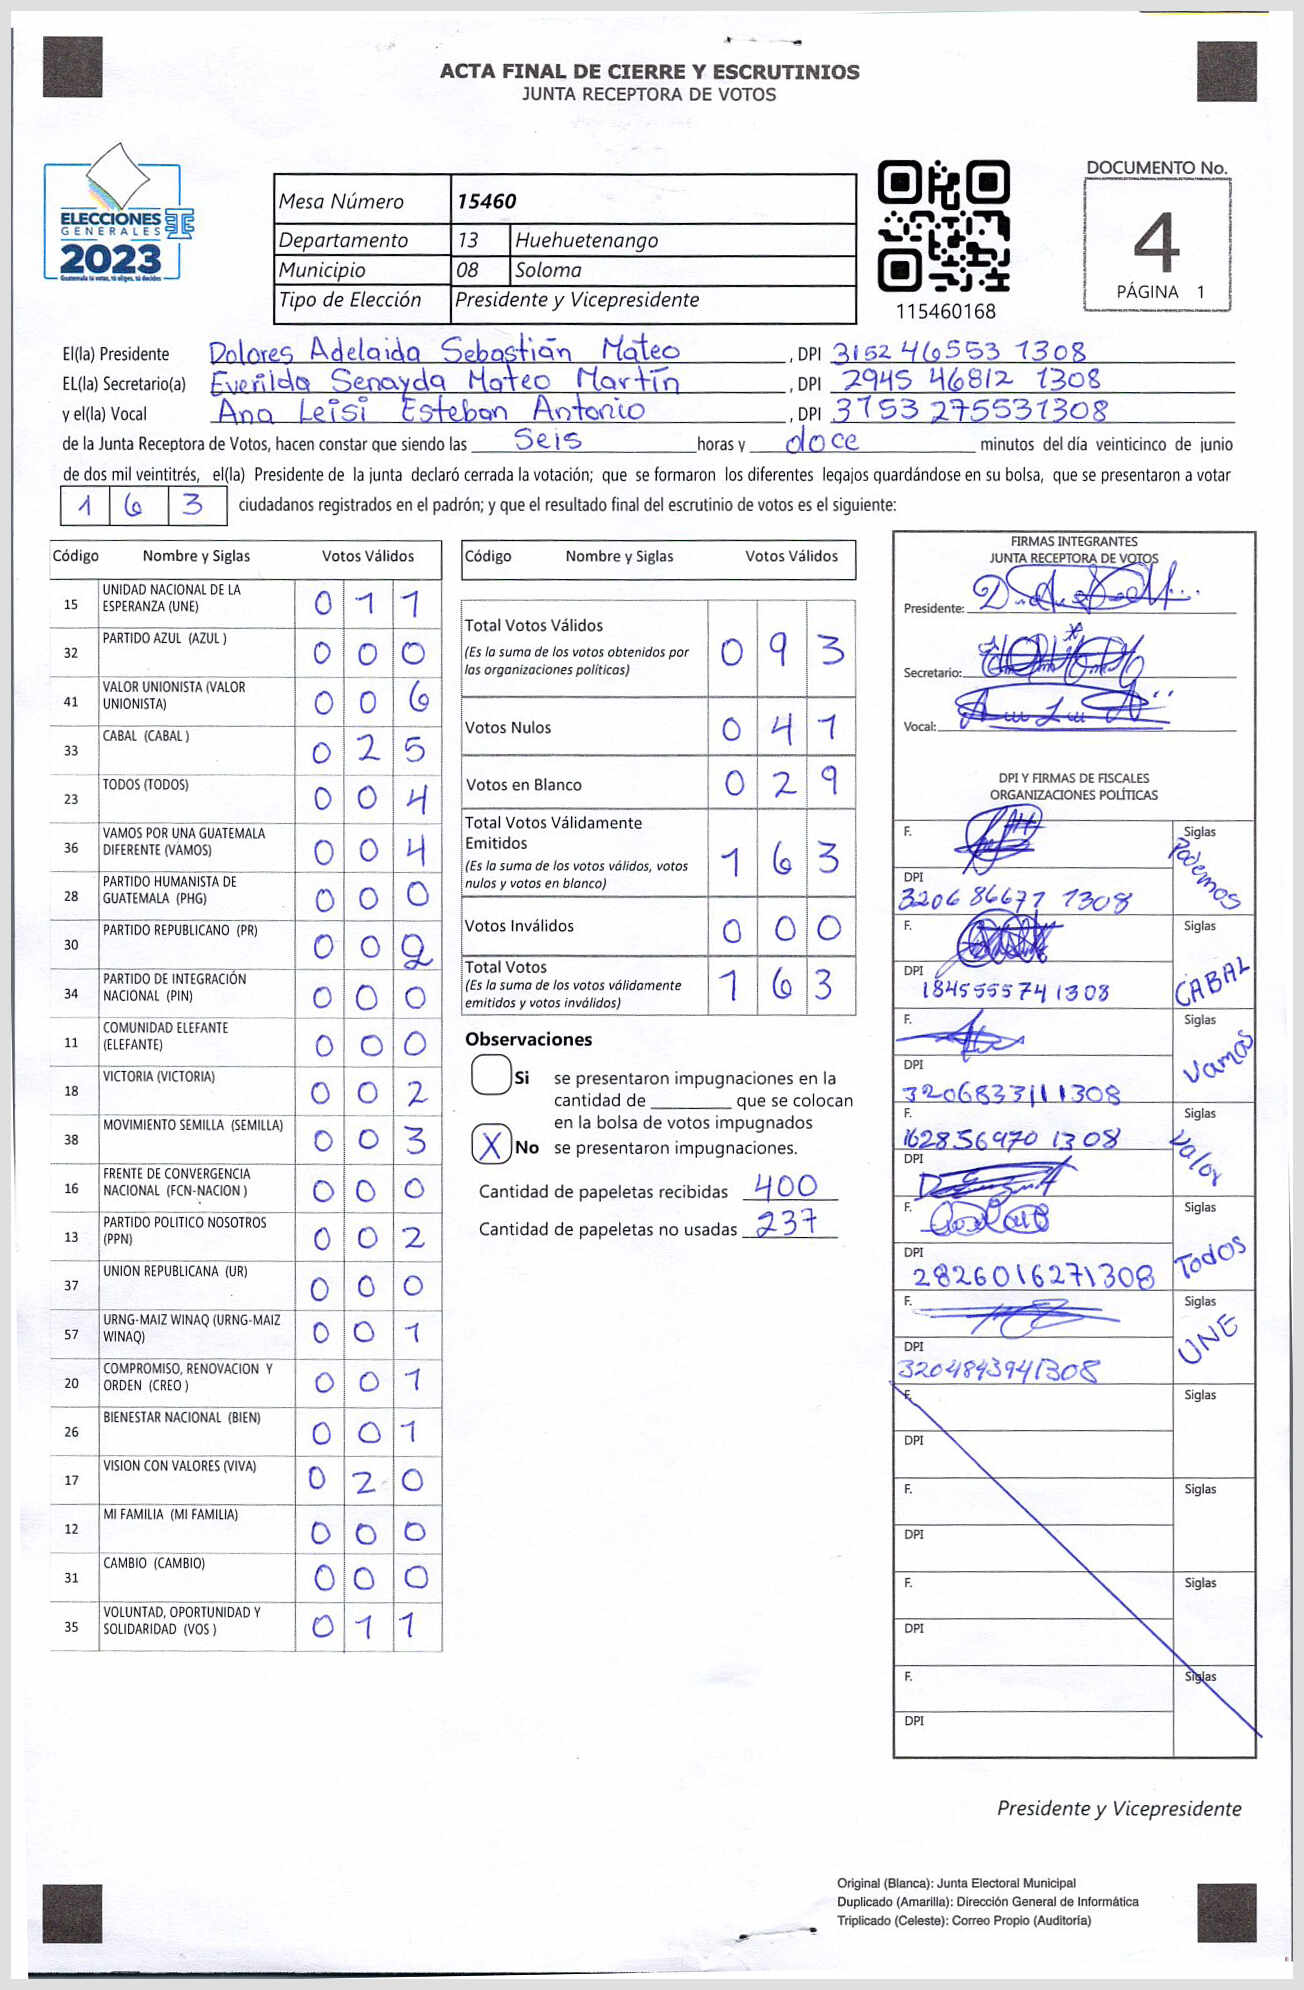 ACTA FINAL DE CIERRE Y ESCRUTINIOS
JUNTA RECEPTORA DE VOTOS
ELECCIONES
GENERALES
2023
Guatemala tú votas, tú eliges, tú decides
Mesa Número 15460
Departamento 13 Huehuetenango
Municipio 08 Soloma
Tipo de Elección Presidente y Vicepresidente
115460168
DOCUMENTO No.
4
PÁGINA 1
El(la) Presidente Dolores Adelaida Sebastián Mateo, DPI 3152 46553 1308
EL(la) Secretario(a) Everilda Senayda Mateo Martín, DPI 2945 46812 1308
y el(la) Vocal Ana Leisi Esteban Antonio, DPI 3153 275531308
de la Junta Receptora de Votos, hacen constar que siendo las Seis horas y doce minutos del día veinticinco de junio
de dos mil veintitrés, el(la) Presidente de la junta declaró cerrada la votación; que se formaron los diferentes legajos guardándose en su bolsa, que se presentaron a votar
1 6 3 ciudadanos registrados en el padrón; y que el resultado final del escrutinio de votos es el siguiente:
Código Nombre y Siglas Votos Válidos
15 UNIDAD NACIONAL DE LA
ESPERANZA (UNE) 0 1 1
32 PARTIDO AZUL (AZUL ) 0 0 0
41 VALOR UNIONISTA (VALOR
UNIONISTA) 0 0 6
33 CABAL (CABAL ) 0 2 5
23 TODOS (TODOS) 0 0 4
36 VAMOS POR UNA GUATEMALA
DIFERENTE (VAMOS) 0 0 4
28 PARTIDO HUMANISTA DE
GUATEMALA (PHG) 0 0 0
30 PARTIDO REPUBLICANO (PR) 0 0 2
34 PARTIDO DE INTEGRACIÓN
NACIONAL (PIN) 0 0 0
11 COMUNIDAD ELEFANTE
(ELEFANTE) 0 0 0
18 VICTORIA (VICTORIA) 0 0 2
38 MOVIMIENTO SEMILLA (SEMILLA) 0 0 3
16 FRENTE DE CONVERGENCIA
NACIONAL (FCN-NACION ) 0 0 0
13 PARTIDO POLITICO NOSOTROS
(PPN) 0 0 2
37 UNION REPUBLICANA (UR) 0 0 0
57 URNG-MAIZ WINAQ (URNG-MAIZ
WINAQ) 0 0 1
20 COMPROMISO, RENOVACION Y
ORDEN (CREO ) 0 0 1
26 BIENESTAR NACIONAL (BIEN) 0 0 1
17 VISION CON VALORES (VIVA) 0 2 0
12 MI FAMILIA (MI FAMILIA) 0 0 0
31 CAMBIO (CAMBIO) 0 0 0
35 VOLUNTAD, OPORTUNIDAD Y
SOLIDARIDAD (VOS ) 0 1 1
Código Nombre y Siglas Votos Válidos
Total Votos Válidos
(Es la suma de los votos obtenidos por
las organizaciones políticas) 0 9 3
Votos Nulos 0 4 1
Votos en Blanco 0 2 9
Total Votos Válidamente
Emitidos
(Es la suma de los votos válidos, votos
nulos y votos en blanco) 1 6 3
Votos Inválidos 0 0 0
Total Votos
(Es la suma de los votos válidamente
emitidos y votos inválidos) 1 6 3
Observaciones
Si se presentaron impugnaciones en la
cantidad de ________ que se colocan
en la bolsa de votos impugnados
X No se presentaron impugnaciones.
Cantidad de papeletas recibidas 400
Cantidad de papeletas no usadas 237
FIRMAS INTEGRANTES
JUNTA RECEPTORA DE VOTOS
Presidente:
Secretario:
Vocal:
DPI Y FIRMAS DE FISCALES
ORGANIZACIONES POLÍTICAS
F. Siglas
Podemos
DPI
3206 86677 1308
F. Siglas
CABAL
DPI
1845555741308
F. Siglas
Vamos
DPI
3206833111308
F. Siglas
162856970 1308
Valor
DPI
F. Siglas
Todos
DPI
2826016271308
F. Siglas
UNE
DPI
3204843941308
F. Siglas
DPI
F. Siglas
DPI
F. Siglas
DPI
F. Siglas
DPI
Presidente y Vicepresidente
Original (Blanca): Junta Electoral Municipal
Duplicado (Amarilla): Dirección General de Informática
Triplicado (Celeste): Correo Propio (Auditoría)